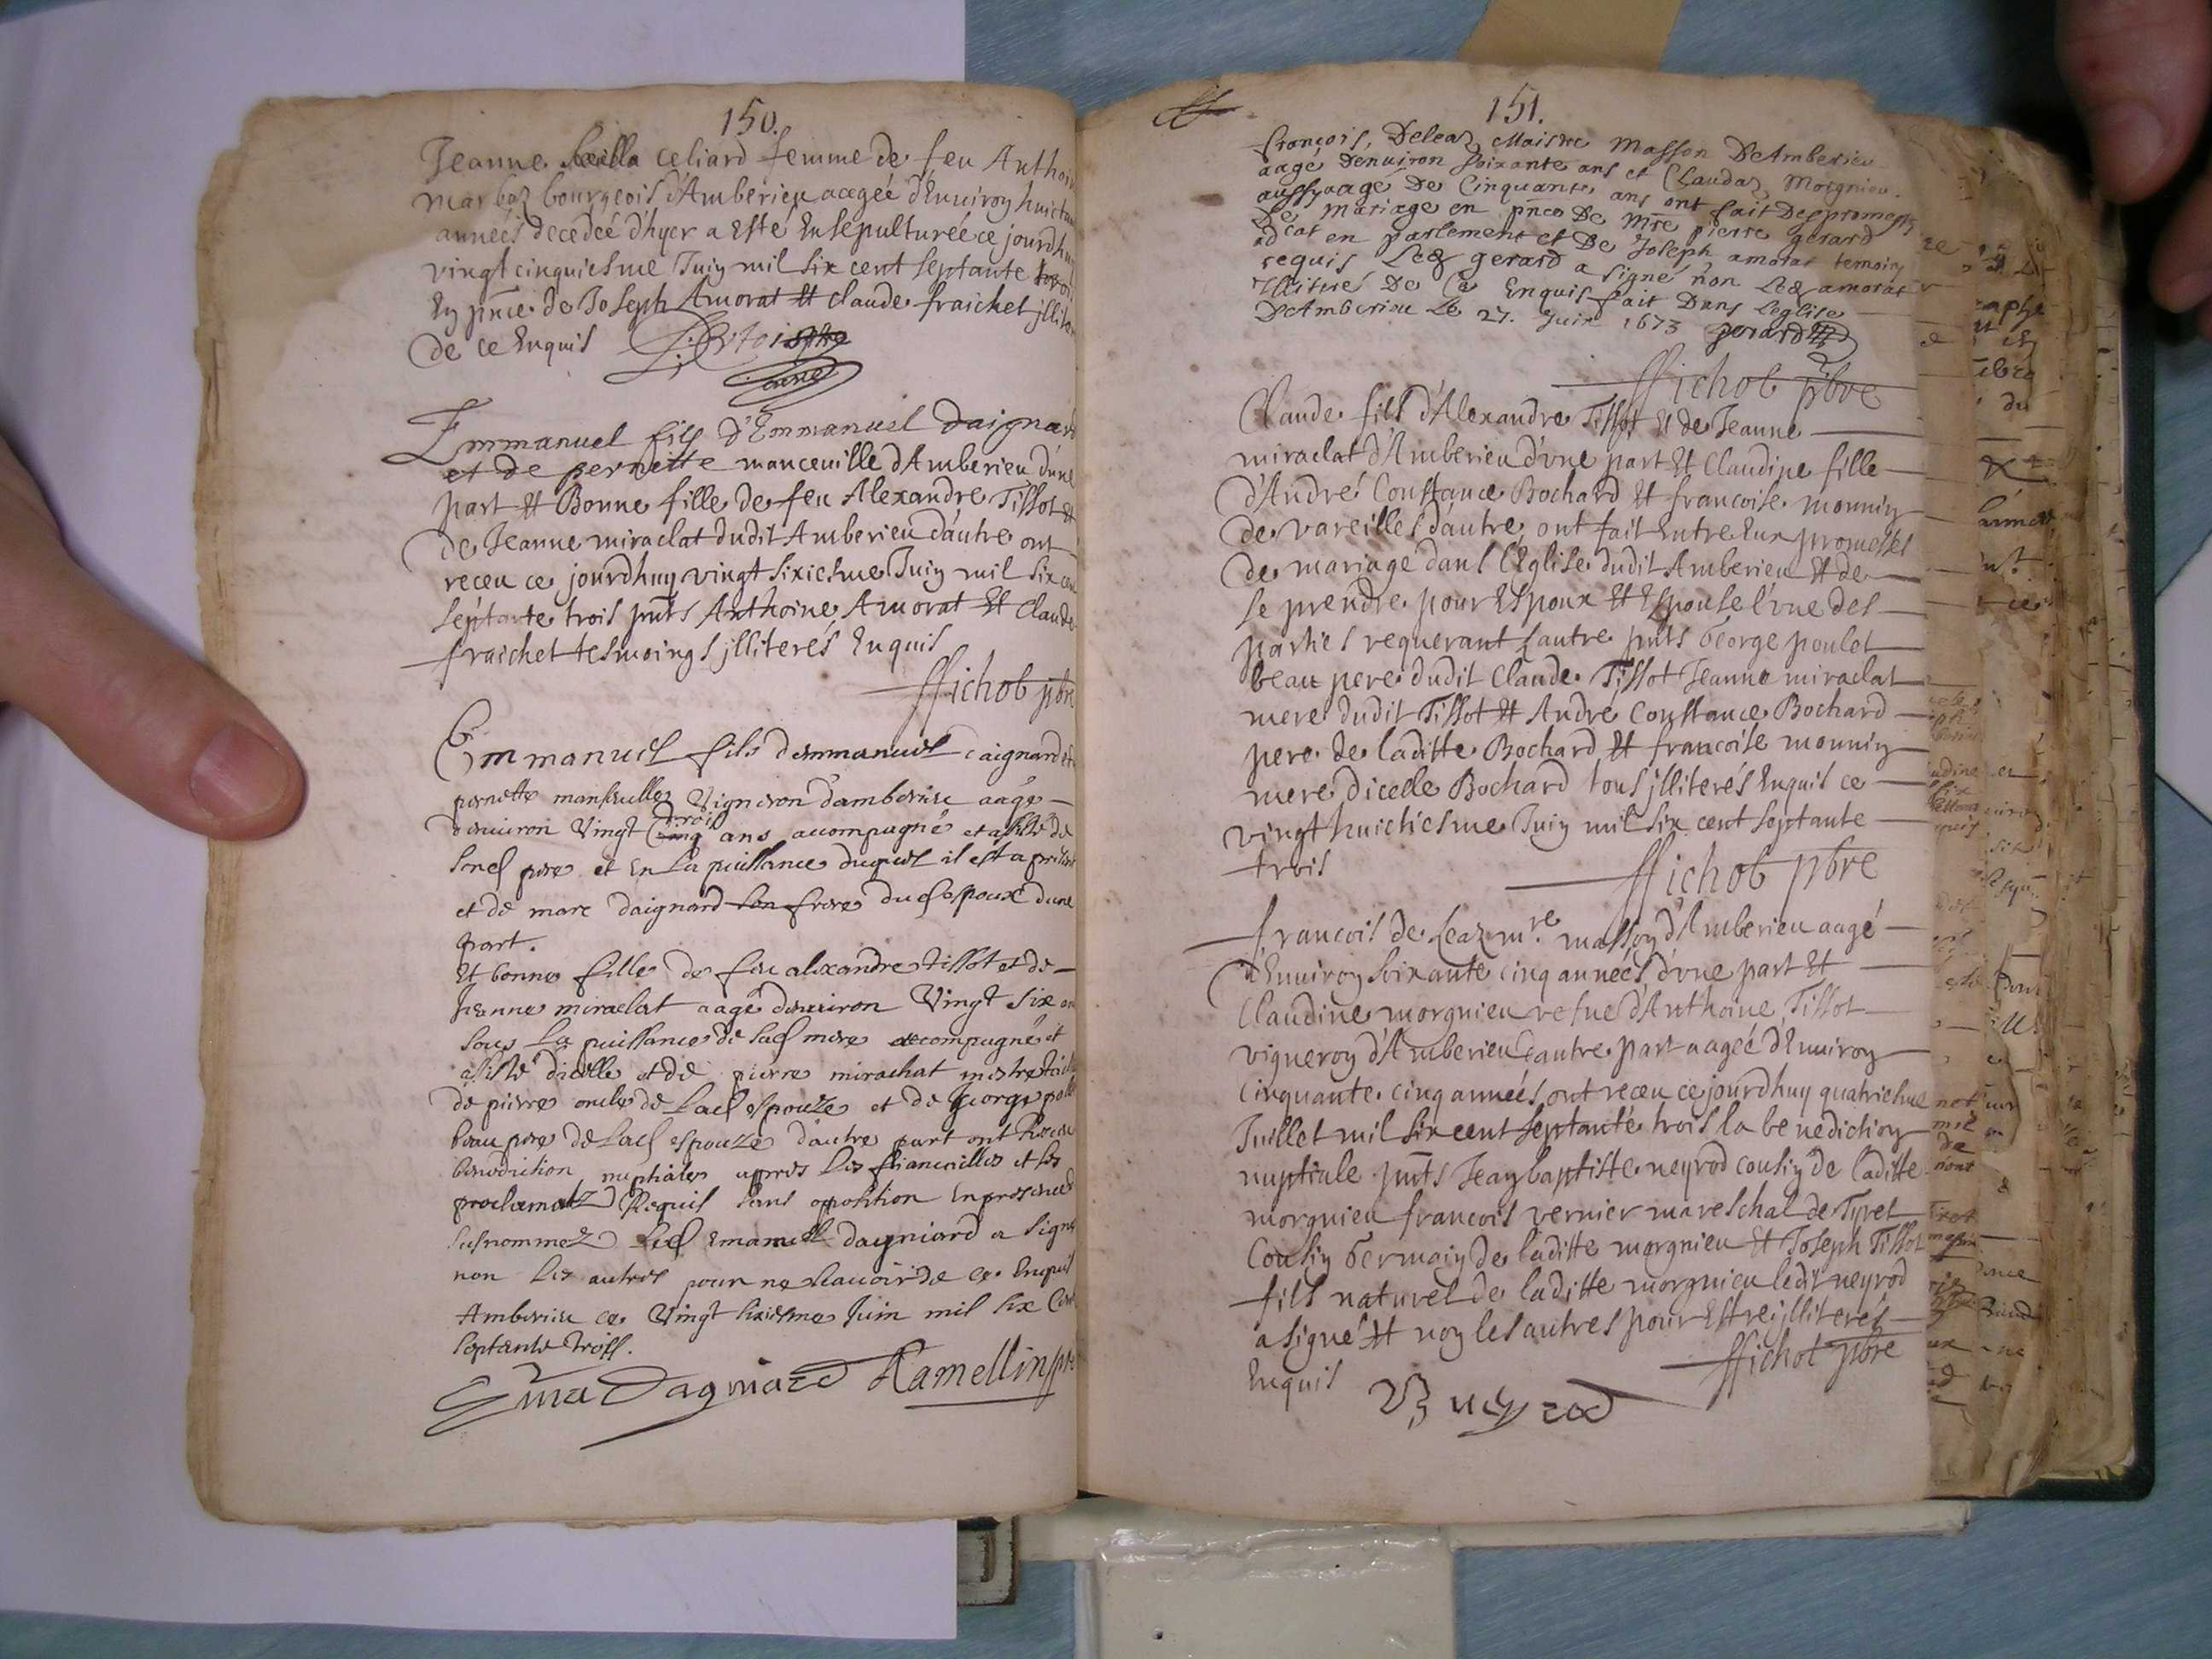 150.
Jeanne celiard femme de feu Anthoi
marbaz bourgeois d'Amberieu aagéé d'Enuiron huicta
annéés decedéé d'hyer a Esté Ensepulturéé ce jourdh
vingt cinquiesme Juin mil six cent septante
En pnce de Joseph Amorat Et claude fraichet jllit
de ce Enquis
Emmanuel fils d'Emmanuel Daignard
et de pernette manceuille d'Amberieu d'une
part Et Bonne fille de feu Alexandre Tissot Et
de Jeanne miraclat dudit Amberieu d'autre ont
receu ce jourdhuy vingt sixiesme Juin mil six cen
septante trois pnts Anthoine Amorat Et Claude
fraichet tesmoings jlliterés Enquis
ffichot pbre
Emmanuel fils demmanuel daignard et d
pernette manseulle Vigneron damberieu aagé
denuiron Vingt trois ans accompagné et assisté de
sond pere et En la puissance duquel il est a present
et de marc daignard son frere dud espoux dune
part.
Et bonne fille de feu alexandre tissot et de
Jeanne miraclat aagé denuiron Vingt six an
sous la puissance de sad mere accompagné et
assisté dicelle et de pierre mirachat mestre
de pierre oncle de lad espouze et de george pol
beau pere de lad espouze dautre part ont Receu
benediction nuptiale appres les fiancailles et les
proclamatz Requis sans oposition En presence
susnommez Led Emanuel daigniard a signé
non les autres pour ne scauoir de ce Enquis
Amberieu ce Vingt sixiesme Juin mil six Cent
septante trois.
Ema Dagniard Ramellin pre
151.
francois, Deleaz Maistre Masson DAmberieu
aagé denuiron soixante ans et Claudaz Morgnieu
aussy aagé De Cinquante ans ont fait Des promess
De Mariage en pnce De Mre pierre gerard
adcat en parlement et De Joseph amorat temoin
requis Led gerard a signé non Led amorat
Illitere De Ce Enquis fait Dans Leglise
DAmberieu Le 27. Juin 1673 gerard
ffichot pbre
Claude fils d'Alexandre Tissot Et de Jeanne
miraclat d'Amberieu d'vne part Et Claudine fille
d'André Constance Bochard Et francoise monnin
de vareilles d'autre, ont fait Entre Eux promesses
de mariage dans l'Eglise dudit Amberieu Et de
se prendre pour Espoux Et Espouse l'vne des
parties requerant l'autre pnts George poulet
beau pere dudit Claude Tissot Jeanne miraclat
mere dudit Tissot Et Andre Constance Bochard
pere de laditte Bochard Et francoise monnin
mere dicelle Bochard tous jlliterés Enquis ce
vingt huictiesme Juin mil six cent septante
trois
ffichot pbre
francois de Leaz mre masson d'Amberieu aagé
d'Enuiron soixante cinq annéés d'vne part Et
Claudine morgnieu vefue d'Anthoine Tissot
vigneron d'Amberieu d'autre part aagéé d'Enuiron
cinquante cinq annéés, ont receu ce jourdhuy quatriesme
Juillet mil six cent septante trois la benediction
nuptiale pnts Jean baptiste neyrod cousin de laditte
morgnieu francois vernier mareschal de Tyret
Cousin Germain de laditte morgnieu Et Joseph Tissot
fils naturel de laditte morgnieu ledit neyrod
a signé Et non les autres pour Estre jlliterés
Enquis
ffichot pbre
neyrod